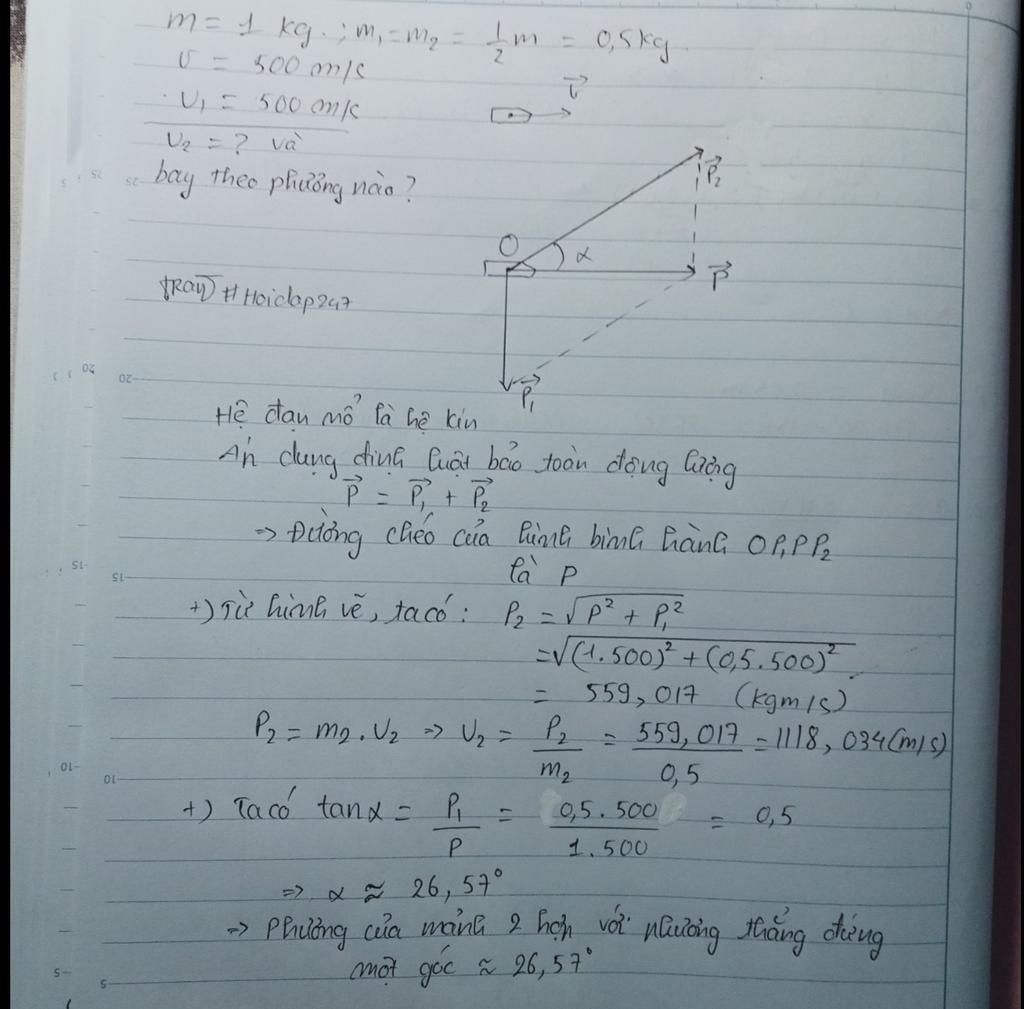 m = 1 kg. ; m₁ = m₂ = 1/2 m = 0,5 kg
v = 500 m/s
v₁ = 500 m/s
v⃗
v₂ = ? và
bay theo phương nào?
P⃗₂
O
α
P⃗
#Hoidap247
P⃗₁
Hệ đạn nổ là hệ kín
Áp dụng định luật bảo toàn động lượng
P⃗ = P⃗₁ + P⃗₂
⇒ Đường chéo của hình bình hành OP₁PP₂
là P
+) Từ hình vẽ, ta có: P₂ = √(P² + P₁²)
= √((1.500)² + (0,5.500)²)
= 559,017 (kgm/s)
P₂ = m₂.v₂ ⇒ v₂ = P₂/m₂ = 559,017/0,5 = 1118,034 (m/s)
+) Ta có tanα = P₁/P = 0,5.500/1.500 = 0,5
⇒ α ≈ 26,57°
⇒ Phương của mảnh 2 hợp với phương thẳng đứng
một góc ≈ 26,57°
20
20
15
15
10
10
5
5
25
25
0